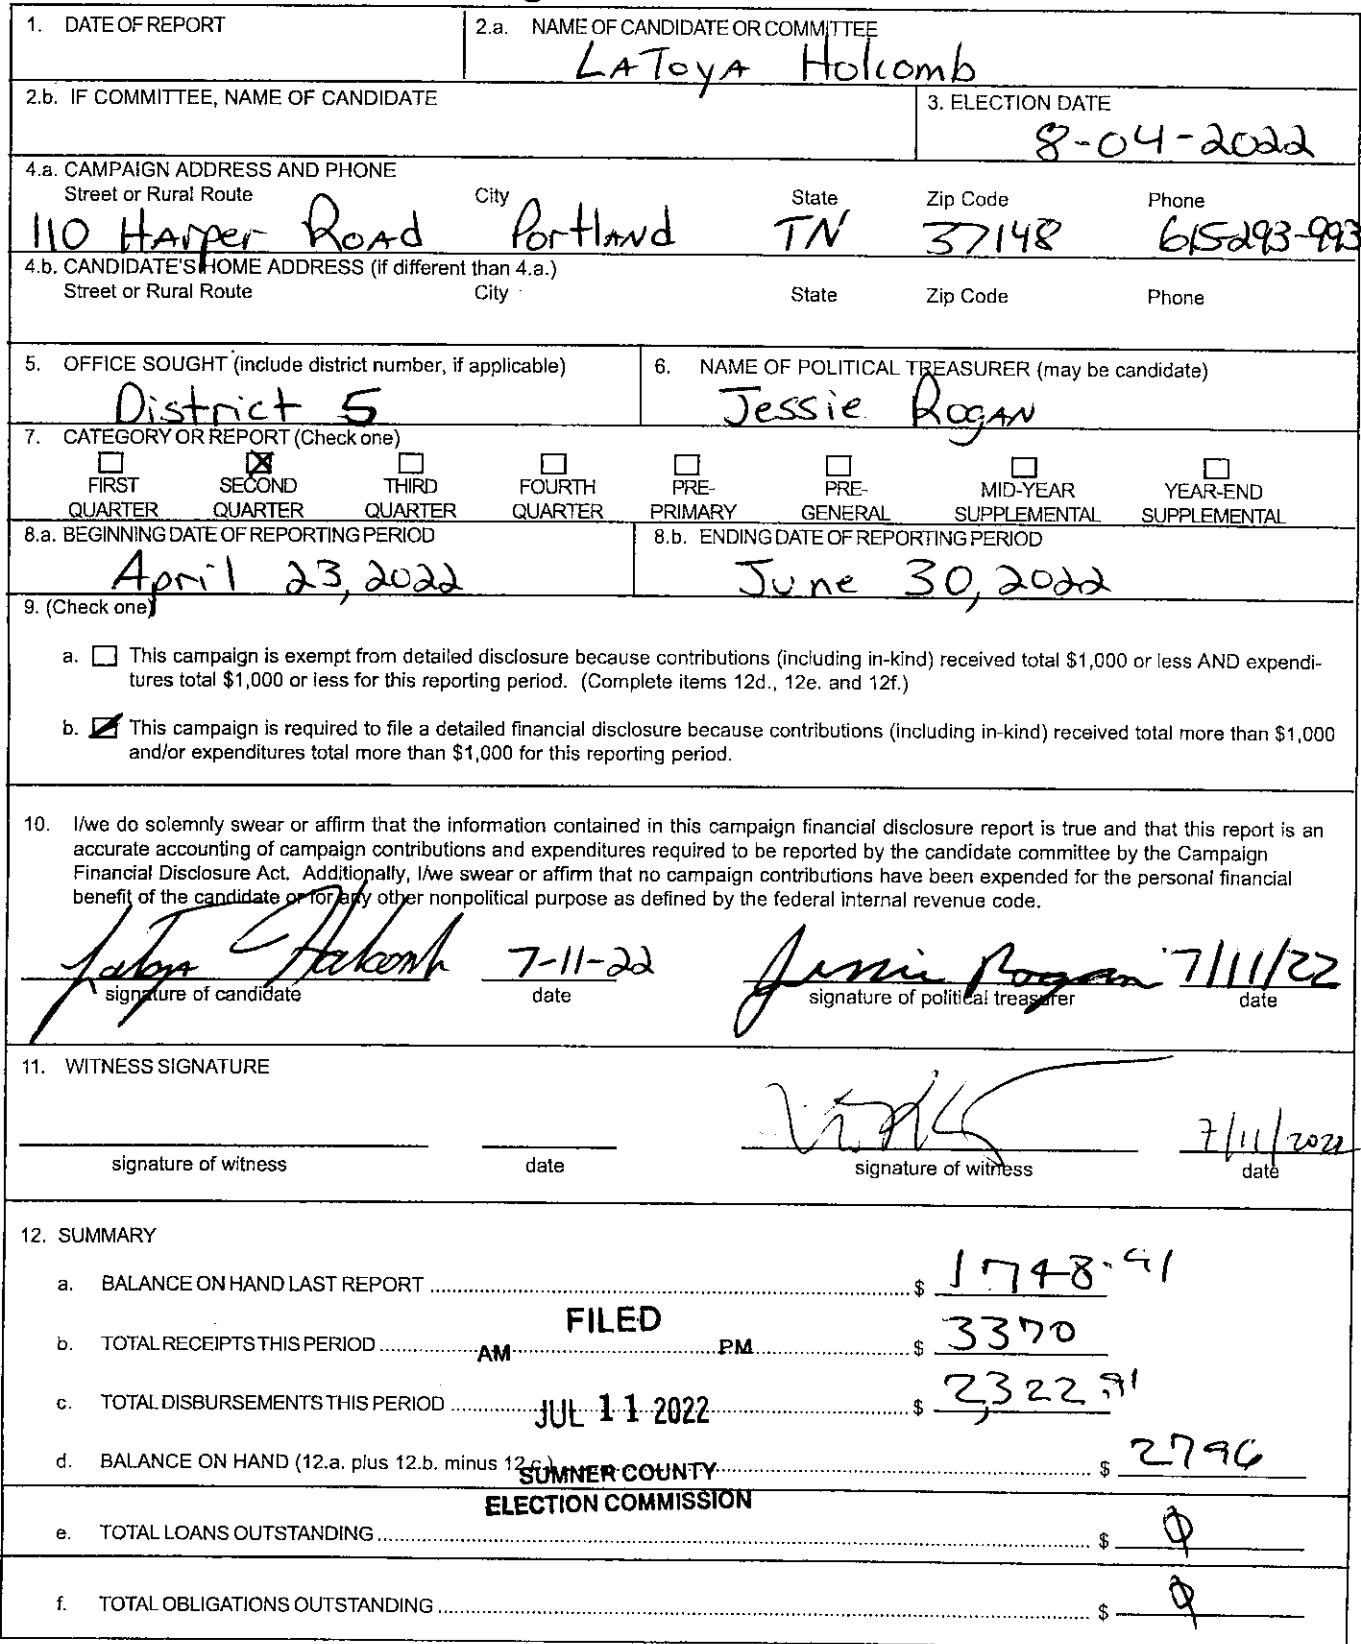 1. DATE OF REPORT
2.a. NAME OF CANDIDATE OR COMMITTEE
LaToya Holcomb
2.b. IF COMMITTEE, NAME OF CANDIDATE
3. ELECTION DATE
8-04-2022
4.a. CAMPAIGN ADDRESS AND PHONE
Street or Rural Route City State Zip Code Phone
110 Harper Road Portland TN 37148 615293-993
4.b. CANDIDATE'S HOME ADDRESS (if different than 4.a.)
Street or Rural Route City State Zip Code Phone
5. OFFICE SOUGHT (include district number, if applicable)
District 5
6. NAME OF POLITICAL TREASURER (may be candidate)
Jessie Rogan
7. CATEGORY OR REPORT (Check one)
FIRST QUARTER
SECOND QUARTER
THIRD QUARTER
FOURTH QUARTER
PRE-PRIMARY
PRE-GENERAL
MID-YEAR SUPPLEMENTAL
YEAR-END SUPPLEMENTAL
8.a. BEGINNING DATE OF REPORTING PERIOD
April 23, 2022
8.b. ENDING DATE OF REPORTING PERIOD
June 30, 2022
9. (Check one)
a. This campaign is exempt from detailed disclosure because contributions (including in-kind) received total $1,000 or less AND expendi-
tures total $1,000 or less for this reporting period. (Complete items 12d., 12e. and 12f.)
b. This campaign is required to file a detailed financial disclosure because contributions (including in-kind) received total more than $1,000
and/or expenditures total more than $1,000 for this reporting period.
10. I/we do solemnly swear or affirm that the information contained in this campaign financial disclosure report is true and that this report is an
accurate accounting of campaign contributions and expenditures required to be reported by the candidate committee by the Campaign
Financial Disclosure Act. Additionally, I/we swear or affirm that no campaign contributions have been expended for the personal financial
benefit of the candidate or for any other nonpolitical purpose as defined by the federal internal revenue code.
LaToya Holcomb 7-11-22 Jessie Rogan 7/11/22
signature of candidate date signature of political treasurer date
11. WITNESS SIGNATURE
7/11/2022
signature of witness date signature of witness date
12. SUMMARY
a. BALANCE ON HAND LAST REPORT $ 1748.91
FILED
b. TOTAL RECEIPTS THIS PERIOD $ 3370
AM PM
c. TOTAL DISBURSEMENTS THIS PERIOD $ 2,322.91
JUL 11 2022
d. BALANCE ON HAND (12.a. plus 12.b. minus 12.c.) $ 2796
SUMNER COUNTY
ELECTION COMMISSION
e. TOTAL LOANS OUTSTANDING $ 0
f. TOTAL OBLIGATIONS OUTSTANDING $ 0